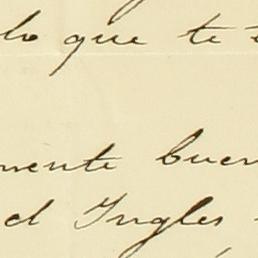 lo que te
mente buen
el Ingles